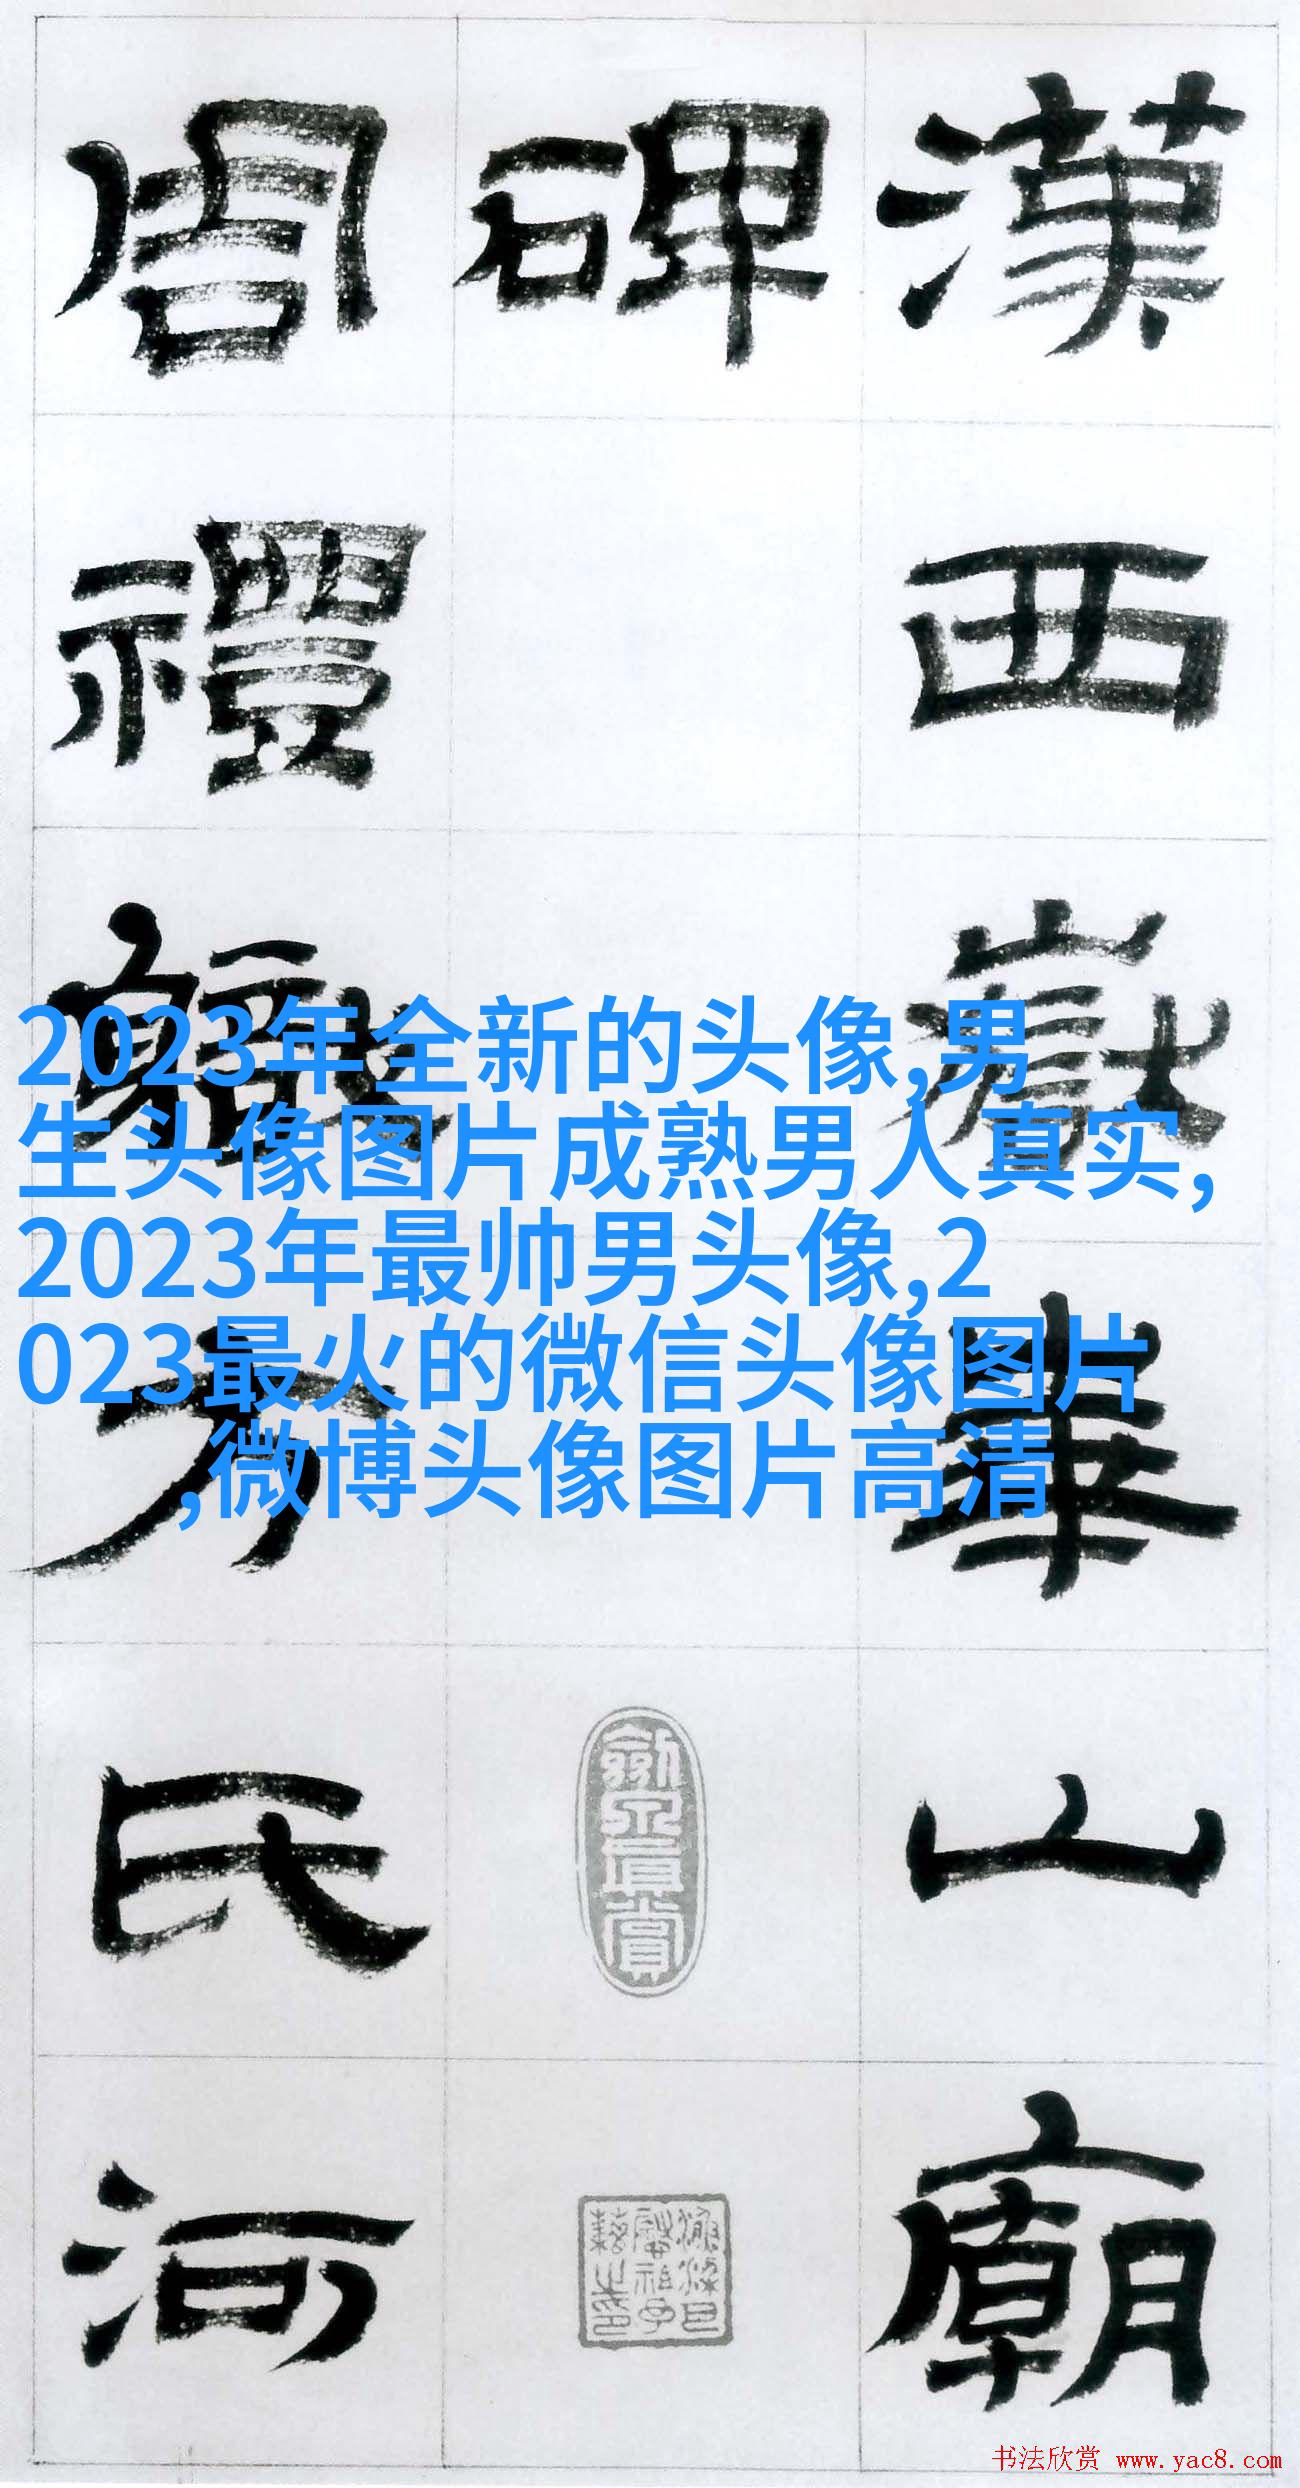 漢西嶽華山廟
碑
周禮軄方氏河
2023年全新的头像,男
生头像图片成熟男人真实,
2023年最帅男头像,2
023最火的微信头像图片
,微博头像图片高清
书法欣赏 www.yac8.com